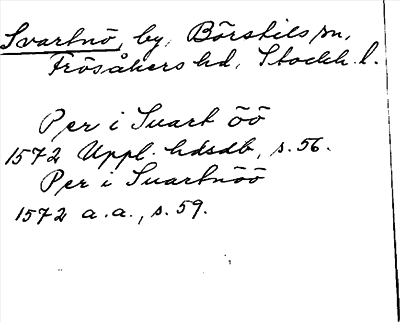 Svartnö, by, Börstils sn,
Frösåkers hd, Stockh. l.
Per i Suart öö
1572 Uppl. hdsdb, s. 56.
Per i Suartnöö
1572 a. a., s. 59.